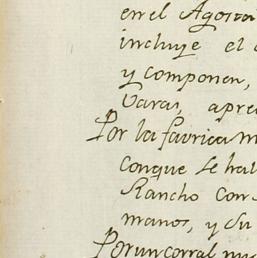 en el Agosta
incluye el
y componen,
Varas, apre
Por la favrica m
conque se hal
Rancho con
manos, y su
Por un corral nue